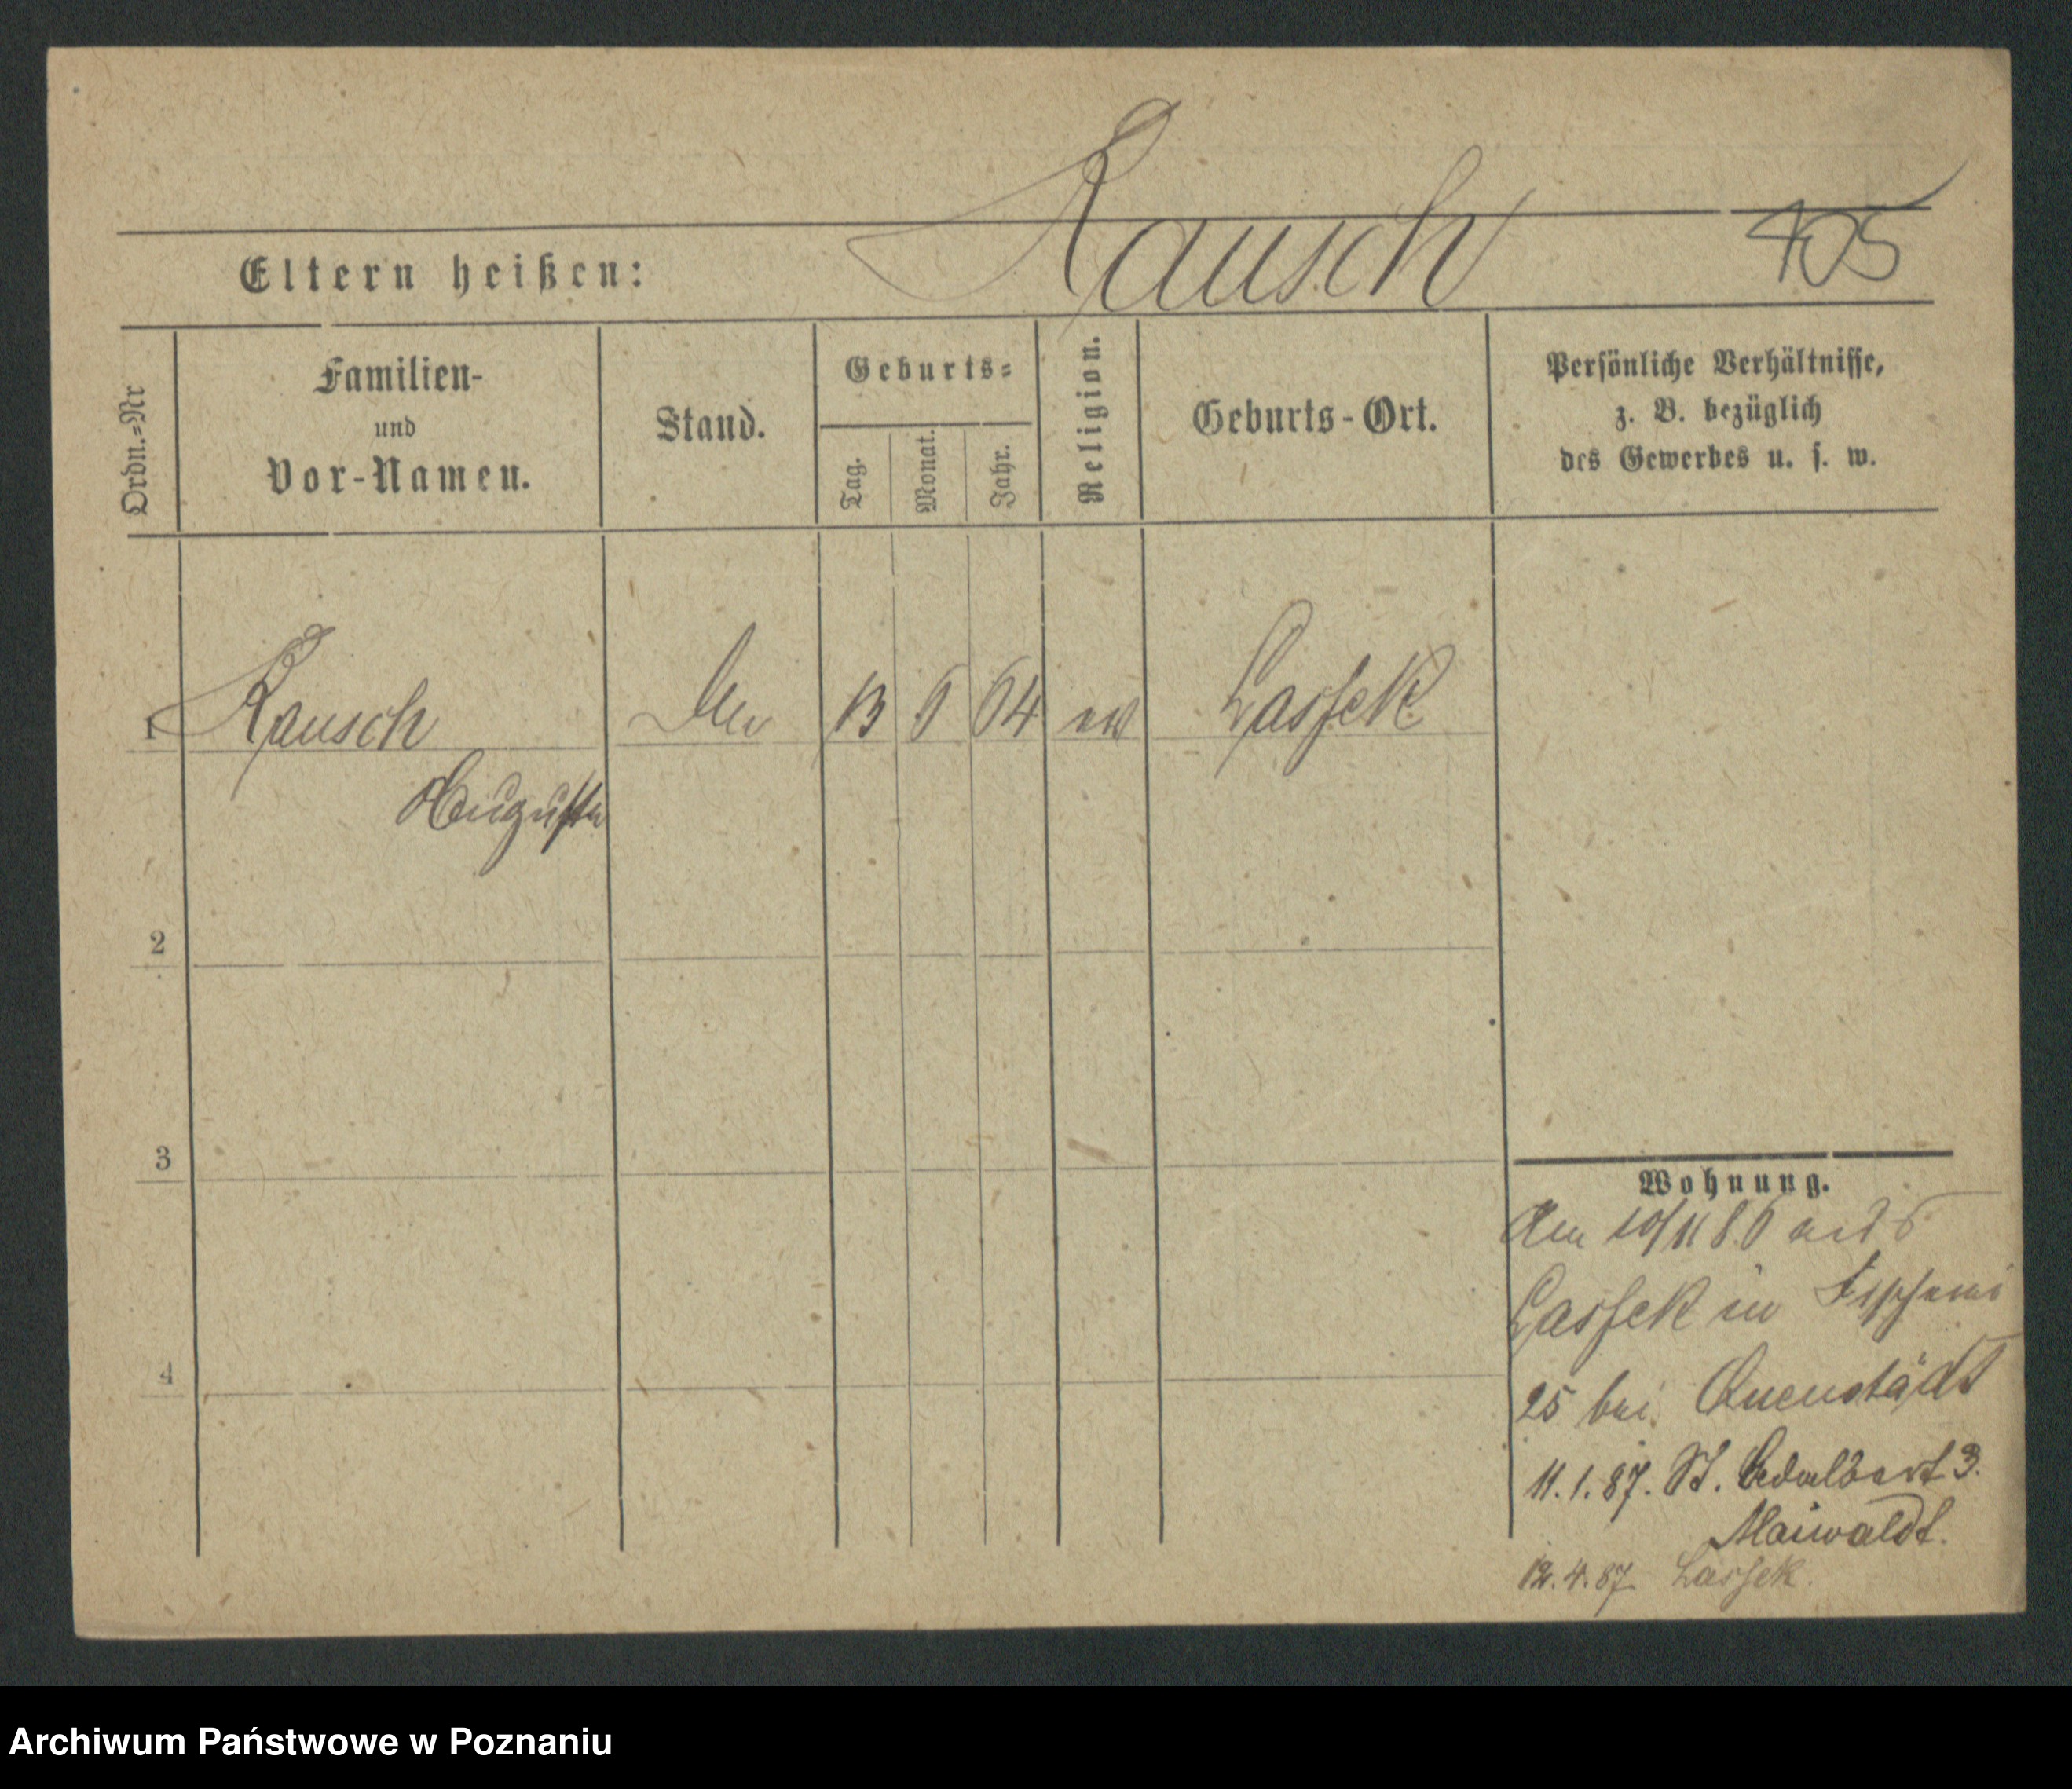 Rausch 405
Eltern heißen:
Ordn.=Nr
Familien-
und
Vor-Namen.
Stand.
Geburts=
Tag.
Monat.
Jahr.
Religion.
Geburts-Ort.
Persönliche Verhältnisse,
z. B. bezüglich
des Gewerbes u. s. w.
1 Rausch 13 6 64 ev Lassek
Auguste
2
3
4
Wohnung.
Am 10/11 86 aus
Lassek in
25 bei Quenstädt
11.1.87. St. Adalbert 3.
Maiwaldt.
12.4.87 Lassek.
Archiwum Państwowe w Poznaniu